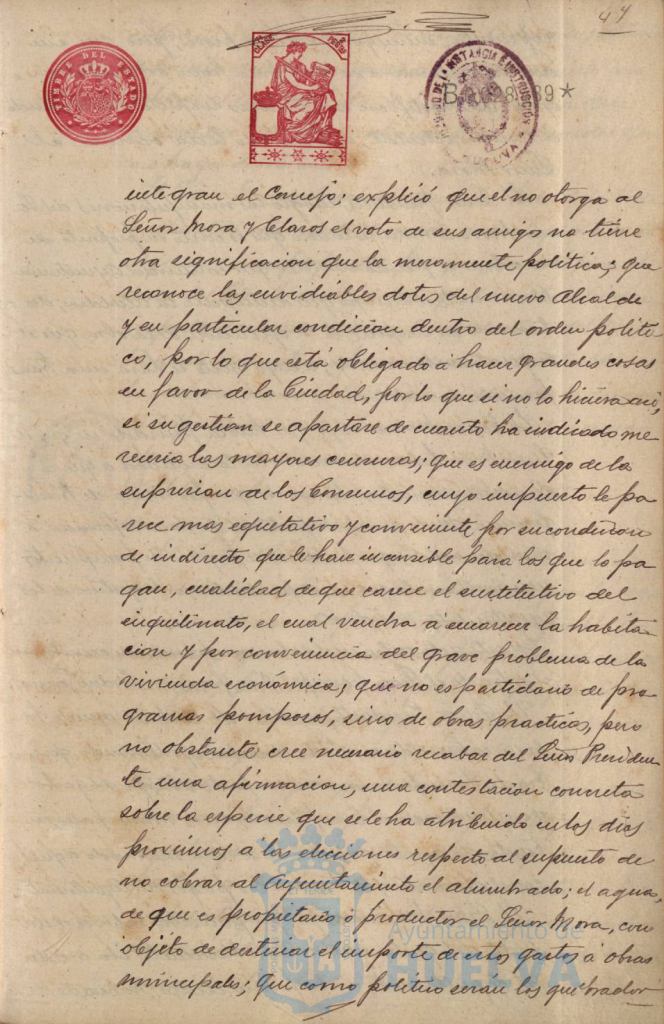 47
TIMBRE DEL ESTADO
B.0.028.839*
HUELVA
integran el Concejo; explicó que el no otorgar al
Señor Mora y Claros el voto de sus amigos no tiene
otra significacion que la meramente politica; que
reconoce las envidiables dotes del nuevo Alcalde
y en particular condicion dentro del orden politi-
co, por lo que está obligado á hacer grandes cosas
en favor de la Ciudad, por lo que si no lo hiciera asi,
si su gestión se apartase de cuanto ha indicado me
receria las mayores censuras; que es enemigo de la
supresion de los Consumos, cuyo impuesto le pa
rece mas equitativo y conveniente por su condicion
de indirecto que le hace incensible para los que lo pa
gan, cualidad de que carece el sustitutivo del
inquilinato, el cual vendra á encarecer la habita-
cion y por del grave problema de la
vivienda económica; que no es partidario de pro
gramas pomposos, sino de obras practicas, pero
no obstante cree necesario recabar del Señor Presiden
te una afirmacion, una contestacion concreta
sobre la especie que se le ha atribuido en los dias
proximos a las elecciones respecto al supuesto de
no cobrar al Ayuntamiento el alumbrado; el agua,
de que es propietario ó productor el Señor Mora, con
objeto de destinar el importe de estos gastos á obras
municipales; que como politico serán los quebrador
Ayuntamiento de
HUELVA